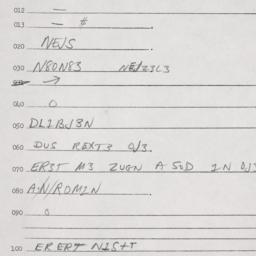 012 —
013 — # .
020 NEJS .
030 N80N83 NE/Z3C3
→
040 0
050 DL1BJ3N
060 DUS REXT3 0/3.
070 ERST M3 ZUGN A SOD IN 0/3
080 A:N/ROM1N .
090 0
100 ERERT N1S+T